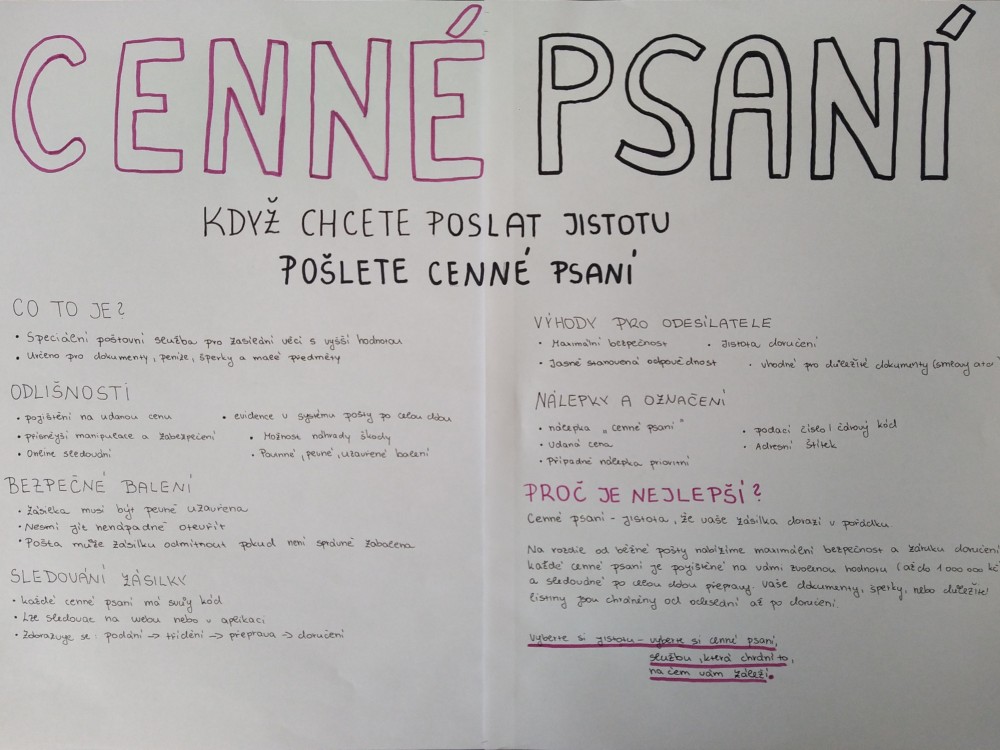 CENNÉ PSANÍ
KDYŽ CHCETE POSLAT JISTOTU
POŠLETE CENNÉ PSANÍ
CO TO JE?
• Speciální poštovní služba pro zaslání věcí s vyšší hodnotou
• Určeno pro dokumenty, peníze, šperky a malé předměty
ODLIŠNOSTI
• pojištění na udanou cenu
• evidence v systému pošty po celou dobu
• přísnější manipulace a zabezpečení
• Možnost náhrady škody
• Online sledování
• Povinné, pevné, uzavřené balení
BEZPEČNÉ BALENÍ
• Zásilka musí být pevně uzavřena
• Nesmí jít nenápadně otevřít
• Pošta může zásilku odmítnout pokud není správně zabalena
SLEDOVÁNÍ ZÁSILKY
• každé cenné psaní má svůj kód
• Lze sledovat na webu nebo v aplikaci
• Zobrazuje se: podání → třídění → přeprava → doručení
VÝHODY PRO ODESILATELE
• Maximální bezpečnost
• Jistota doručení
• Jasně stanovená odpovědnost
• vhodné pro důležité dokumenty (smlouvy atd
NÁLEPKY A OZNAČENÍ
• nálepka „cenné psaní"
• podací číslo / čárový kód
• Udaná cena
• Adresní štítek
• Případně nálepka prioritní
PROČ JE NEJLEPŠÍ?
Cenné psaní - jistota, že vaše zásilka dorazí v pořádku
Na rozdíl od běžné pošty nabízíme maximální bezpečnost a záruku doručení
každé cenné psaní je pojištěné na vámi zvolenou hodnotu (až do 1 000 000 kč
a sledované po celou dobu přepravy. vaše dokumenty, šperky, nebo důležité
listiny jsou chráněny od odeslání až po doručení.
Vyberte si jistotu - vyberte si cenné psaní,
službu, která chrání to,
na čem vám záleží.